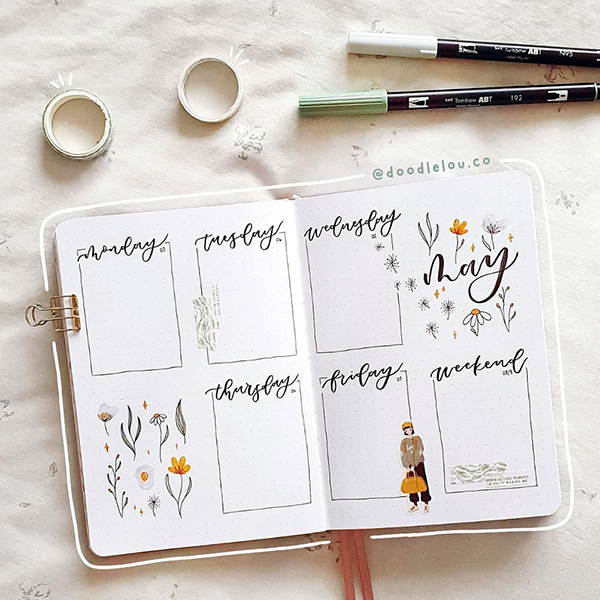 N95
Tombow ABT
Tombow ABT 192
@doodlelou.co
monday
03
tuesday
04
wednesday
05
may
thursday
06
friday
07
weekend
08/9